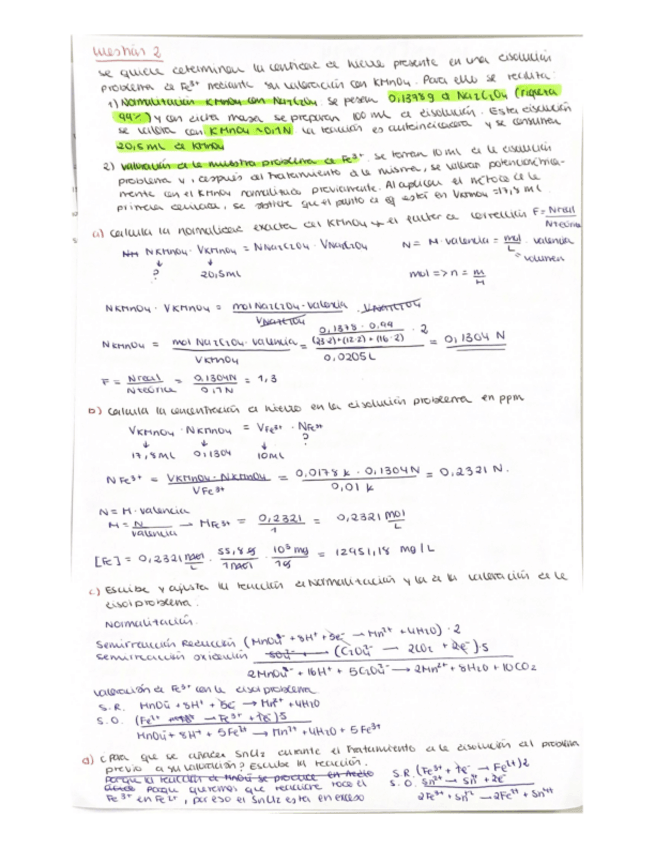 Cuestión 2
se quiere determinar la cantidad de hierro presente en una disolución
problema de Fe³⁺ mediante su valoración con KMnO₄. Para ello se realiza:
1) Normalización KMnO₄ con Na₂C₂O₄. Se pesan 0,1378g de Na₂C₂O₄ (riqueza
99%) y con dicha masa se preparan 100 ml de disolución. Esta disolución
se valora con KMnO₄ ≈0,1N. La reacción es autoindicadora y se consumen
20,5 mL de KMnO₄
2) valoración de la muestra problema de Fe³⁺. Se toman 10 ml de la disolución
problema y, después del tratamiento de la misma, se valoran potenciométrica-
mente con el KMnO₄ normalizado previamente. Al aplicar el método de la
primera derivada, se obtiene que el punto de eq está en VKMnO₄ = 17,8 mL.
a) Calcula la normalidad exacta del KMnO₄ y el factor de corrección F = Nreal / Nteórica
NKMnO₄ · VKMnO₄ = NNa₂C₂O₄ · VNa₂C₂O₄ N = M · valencia = mol / L · valencia
↓ ↓ volumen
? 20,5mL mol => n = m / M
NKMnO₄ · VKMnO₄ = mol Na₂C₂O₄ · valencia / VNa₂C₂O₄ · VNa₂C₂O₄
NKMnO₄ = mol Na₂C₂O₄ · valencia / VKMnO₄ = 0,1378 · 0,99 / (23·2)+(12·2)+(16·2) · 2 / 0,0205L = 0,1304 N
F = Nreal / Nteórica = 0,1304N / 0,1N = 1,3
b) Calcula la concentración de hierro en la disolución problema en ppm
VKMnO₄ · NKMnO₄ = VFe³⁺ · NFe³⁺
↓ ↓ ↓ ?
17,8mL 0,1304 10mL
NFe³⁺ = VKMnO₄ · NKMnO₄ / VFe³⁺ = 0,0178 L · 0,1304N / 0,01 L = 0,2321 N.
N = M · valencia
M = N / valencia → MFe³⁺ = 0,2321 / 1 = 0,2321 mol / L
[Fe] = 0,2321 mol / L · 55,8 g / 1 mol · 10³ mg / 1g = 12951,18 mg/L
c) Escribe y ajusta la reacción de Normalización y la de la valoración de la
disol problema.
Normalización.
Semirreacción Reducción (MnO₄⁻ + 8H⁺ + 5e⁻ → Mn²⁺ + 4H₂O) · 2
Semirreacción oxidación (C₂O₄²⁻ → 2CO₂ + 2e⁻) · 5
2MnO₄⁻ + 16H⁺ + 5C₂O₄²⁻ → 2Mn²⁺ + 8H₂O + 10CO₂
Valoración de Fe³⁺ con la disol problema
S.R. MnO₄⁻ + 8H⁺ + 5e⁻ → Mn²⁺ + 4H₂O
S.O. (Fe²⁺ → Fe³⁺ + 1e⁻) 5
MnO₄⁻ + 8H⁺ + 5Fe²⁺ → Mn²⁺ + 4H₂O + 5Fe³⁺
d) ¿Para que se añade SnCl₂ durante el tratamiento de la disolución del problema
previo a su valoración? Escribe la reacción.
Porque la reacción de MnO₄⁻ se produce en medio S.R. (Fe³⁺ + 1e⁻ → Fe²⁺) 2
ácido Porque queremos que reaccione todo el S.O. Sn²⁺ → Sn⁴⁺ + 2e⁻
Fe³⁺ en Fe²⁺, por eso el SnCl₂ esta en exceso 2Fe³⁺ + Sn²⁺ → 2Fe²⁺ + Sn⁴⁺